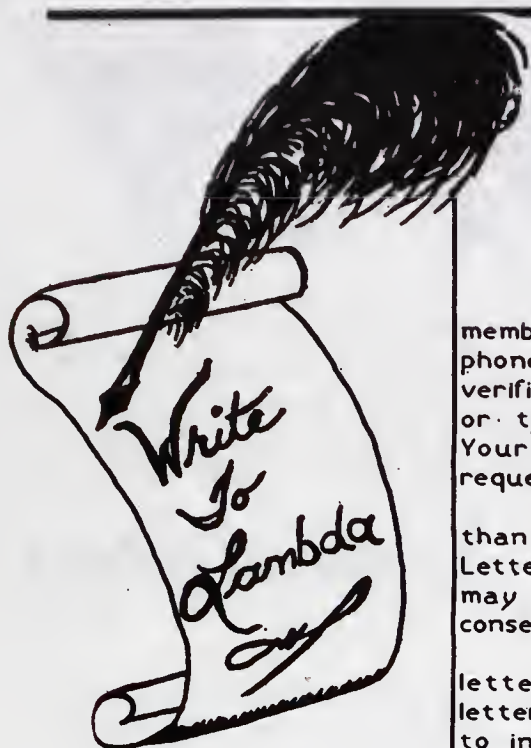 Write
To
Lambda
memb
phone
verifi
or t
Your
reque
than
Lette
may
conse
lette
letter
to in